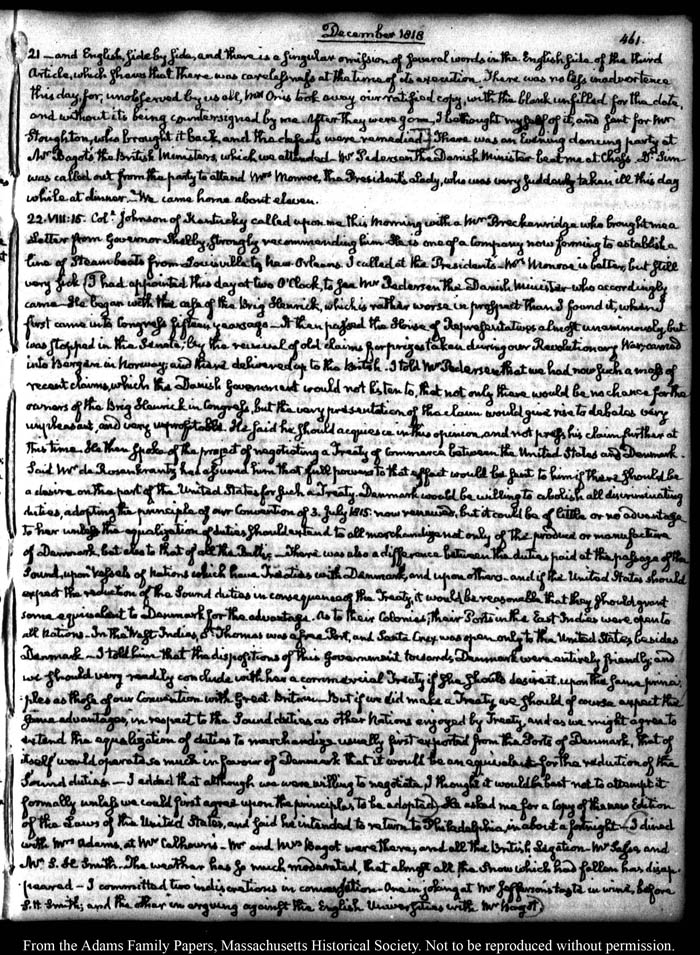 December 1818
461.
21 – and English, side by side, and there is a singular omission of several words in the English side of the third
Article, which shews that there was carelessness at the time of its execution. There was no less inadvertence
this day, for, unobserved by us all, Mr Onis took away our ratified copy, with the blank unfilled for the date,
and without its being countersigned by me. After they were gone, I bethought myself of it, and sent for Mr
Stoughton, who brought it back, and the defects were remedied. There was an Evening dancing party at
Mr Bagot's the British Ministers, which we attended. Mr Pedersen the Danish Minister beat me at Chess. Dr Sim
was called out from the party to attend Mrs Monroe, the President's Lady, who was very suddenly taken ill this day
while at dinner. We came home about eleven.
22. VIII:15. Coll. Johnson of Kentucky called upon me this morning with a Mr Breckenridge who brought me a
Letter from Governor Shelby, strongly recommending him. He is one of a Company now forming to establish a
line of Steam boats from Louisville to New Orleans. I called at the President's. Mrs Monroe is better, but still
very sick. (I had appointed this day at two O'Clock, to see Mr Pedersen the Danish Minister who accordingly
came. He began with the case of the Brig Henrick, which is rather worse in prospect than I found it, when I
first came into Congress fifteen years ago – It then passed the House of Representatives almost unanimously, but
was stopped in the Senate, by the revival of old claims for prizes taken during our Revolutionary War, carried
into Bergen in Norway, and there delivered up to the British. I told Mr Pedersen that we had now such a mass of
recent claims, which the Danish Government would not listen to, that not only there would be no chance for the
owners of the Brig Henrick in Congress, but the very presentation of the claim would give rise to debates very
unpleasant, and very unprofitable. He said he should acquiesce in this opinion, and not press his claim further at
this time. He then spoke of the project of negotiating a Treaty of Commerce between the United States and Denmark.
Said Mr de Rosenkrantz had assured him that full powers to that effect would be sent to him if there should be
a desire on the part of the United States for such a Treaty. Denmark would be willing to abolish all discriminating
duties, adopting the principle of our Convention of 3. July 1815. now renewed, but it could be of little or no advantage
to her unless the equalization of duties should extend to all merchandize not only of the produce or manufacture
of Denmark, but also to that of all the Baltic. – There was also a difference between the duties paid at the passage of the
Sound, upon Vessels of Nations which have Treaties with Denmark, and upon others. and if the United States should
expect the reduction of the Sound duties in consequence of the Treaty, it would be reasonable that they should grant
some equivalent to Denmark for the advantage. As to their Colonies, their Ports in the East Indies were open to
all Nations. In the West Indies, St Thomas was a free Port, and Santa Crux was open only to the United States besides
Denmark – I told him that the dispositions of this Government towards Denmark were entirely friendly, and
we should very readily conclude with her a commercial Treaty if she should desire it, upon the same princi-
ples as those of our Convention with Great Britain – But if we did make a Treaty we should of course expect the
same advantages, in respect to the Sound duties as other Nations enjoyed by Treaty, and as we might agree to
extend the equalization of duties to merchandize usually first exported from the Ports of Denmark, that of
itself would operate so much in favour of Denmark that it would be an equivalent for the reduction of the
Sound duties. – I added that although we were willing to negotiate, I thought it would be best not to attempt it
formally unless we could first agree upon the principles to be adopted. He asked me for a Copy of the new Edition
of the Laws of the United States, and said he intended to return to Philadelphia, in about a fortnight – I dined
with Mrs Adams, at Mr Calhoun's – Mr and Mrs Bagot were there, and all the British Legation – and
Mr S. H. Smith. The weather has so much moderated, that almost all the Snow which had fallen has disap-
peared – I committed two indiscretions in conversation – One in joking at Mr Jefferson's taste in wine, before
S. H. Smith; and the other in arguing against the English Universities with Mr Bagot.)
From the Adams Family Papers, Massachusetts Historical Society. Not to be reproduced without permission.